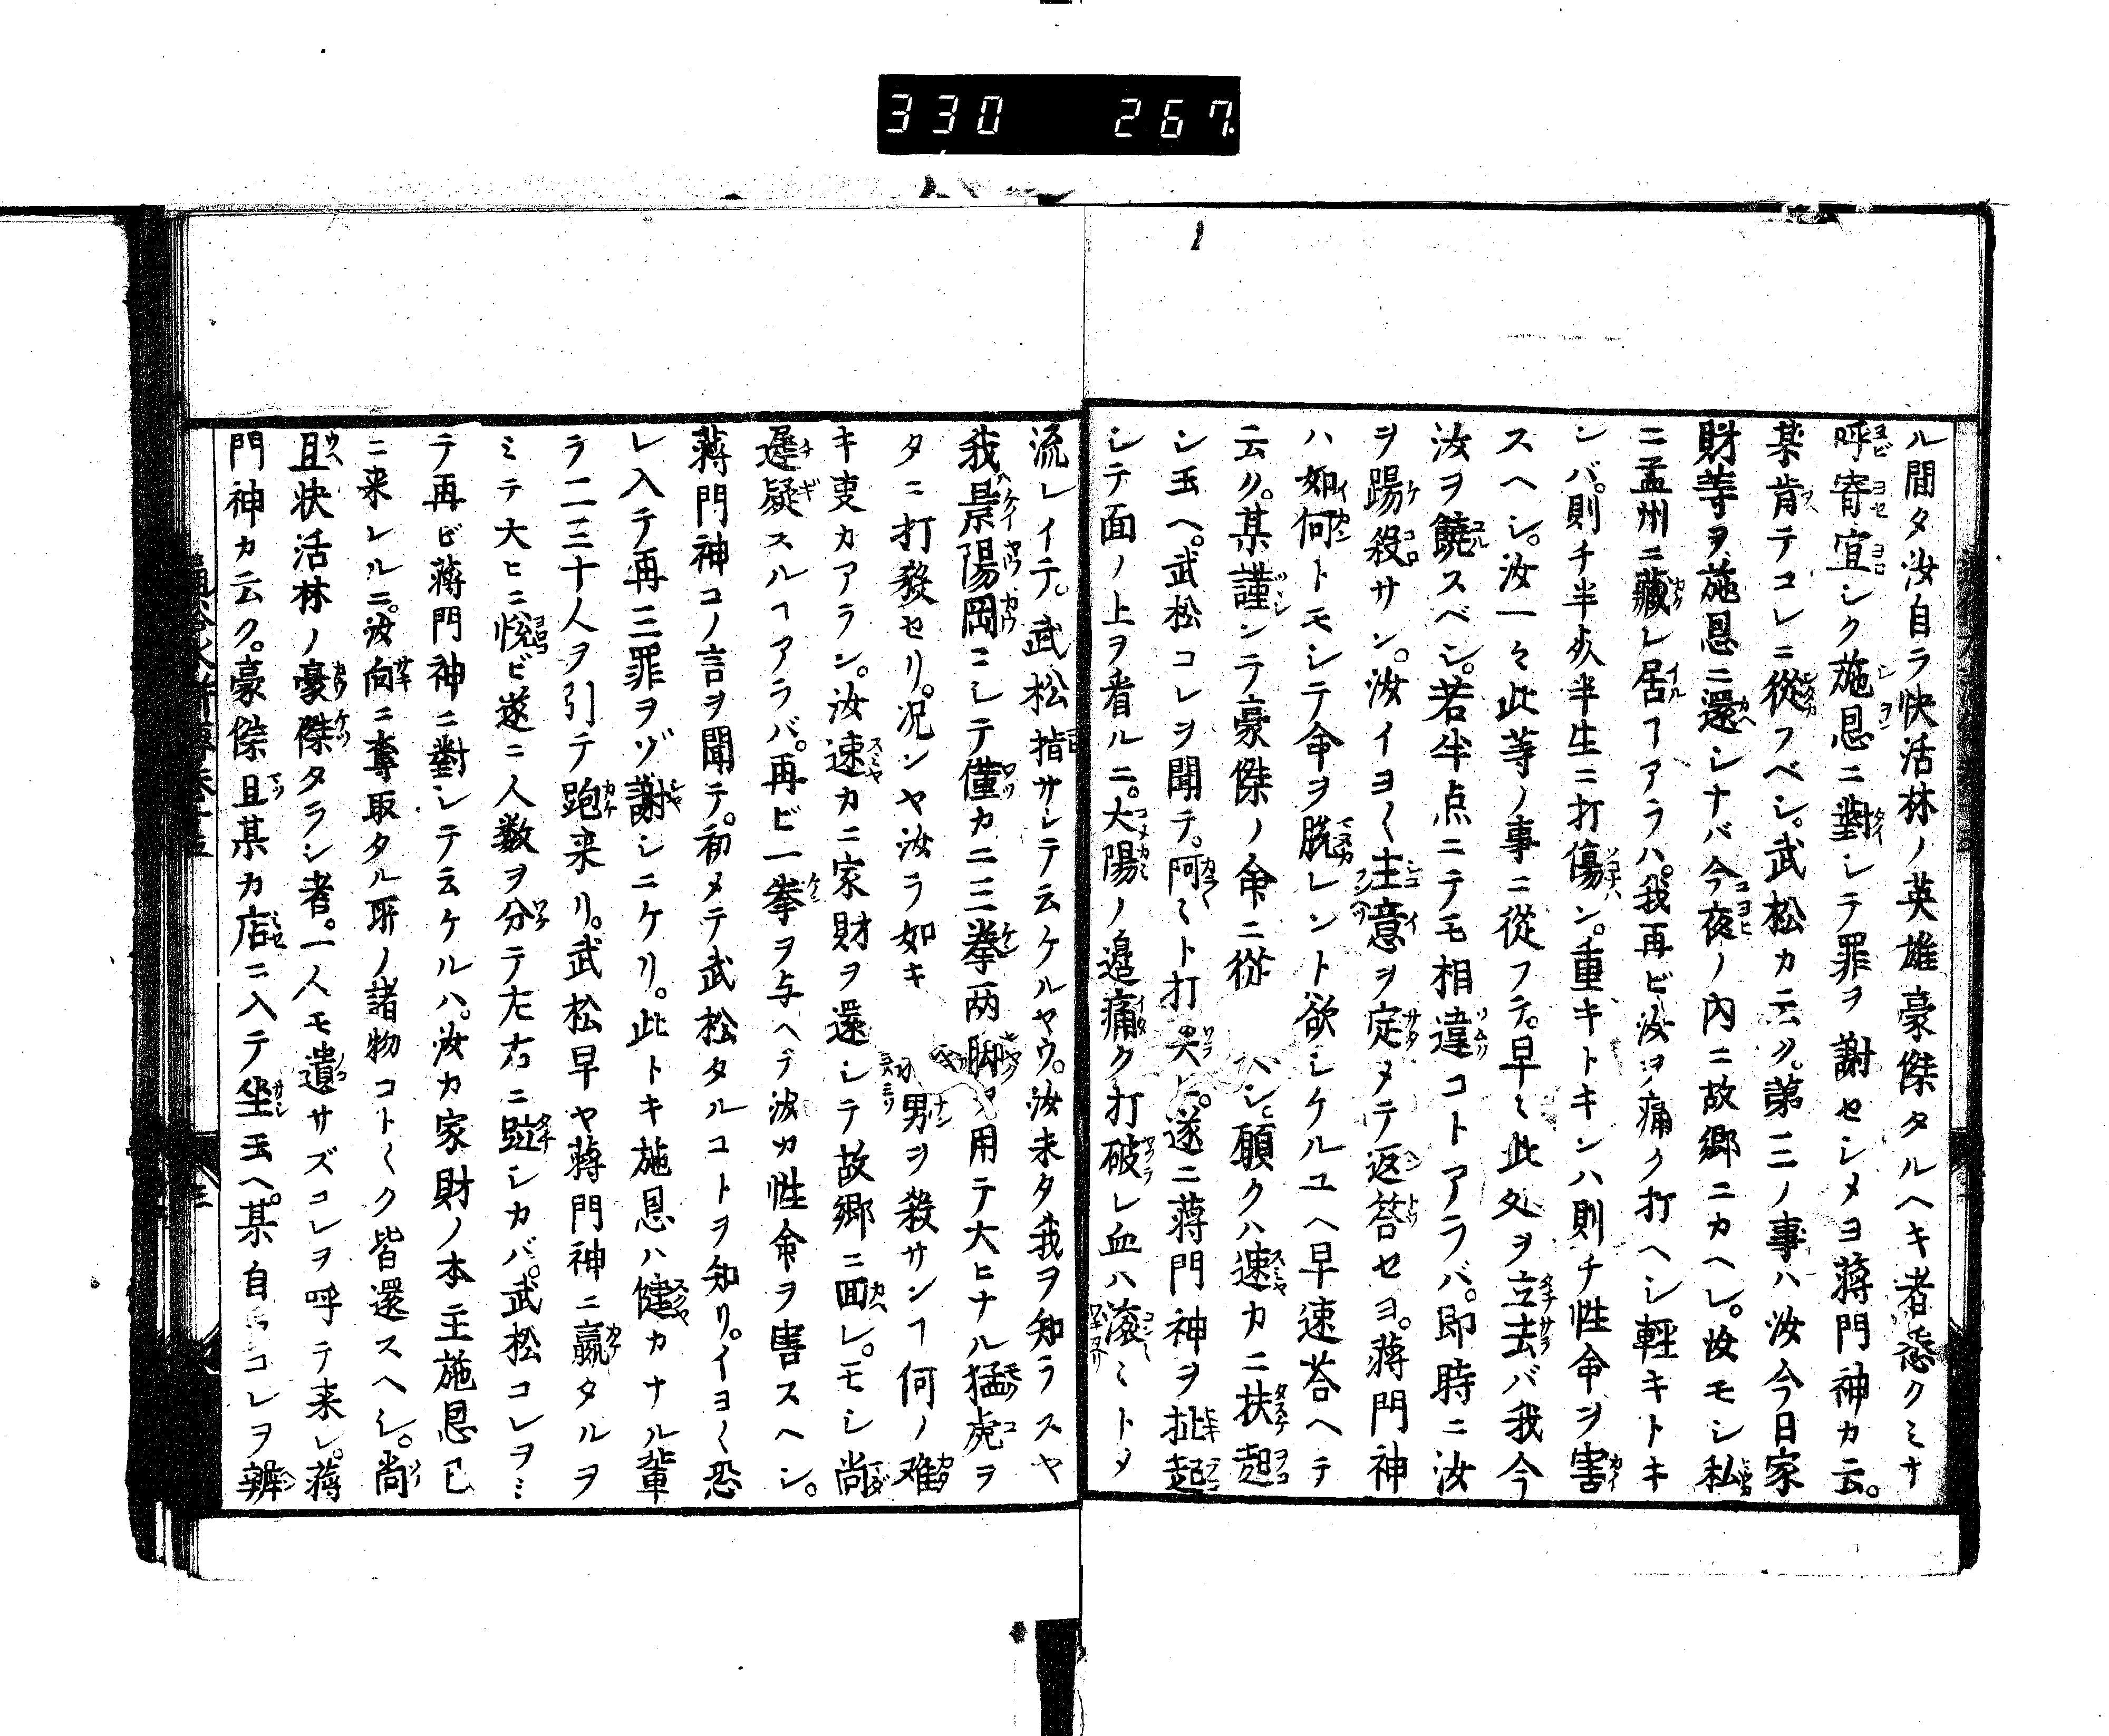 330 267
ル間タ汝自ラ快活林ノ英雄豪傑タルヘキ者悉クミナ
呼寄宜シク施恩ニ對シテ罪ヲ謝セシメヨ蒋門神カ云。
某肯テコレニ從フベシ。武松カ云ク。第三ノ事ハ汝今日家
財等ヲ施恩ニ還シナバ今夜ノ内ニ故郷ニカヘレ。汝モシ私
ニ孟州ニ藏レ居ヿアラハ。我再ビ汝ヲ痛ク打ヘシ軽キトキ
ンバ。則チ半死半生ニ打傷ン。重キトキンハ則チ性命ヲ害
スヘシ。汝一々此等ノ事ニ從フテ。早ミ此処ヲ立去バ我今
汝ヲ饒スベシ。若半点ニテモ相違コトアラバ。即時ニ汝
ヲ踢殺サン。汝イヨ〱主意ヲ定メテ返荅セヨ。蒋門神
ハ如何トモシテ命ヲ脱レント欲シケルユヘ早速荅ヘテ
云ク。某謹ンテ豪傑ノ命ニ從ベシ願クハ速カニ扶起
シ玉ヘ。武松コレヲ聞テ。阿ミト打笑ヒ。遂ニ蒋門神ヲ扯起
シテ面ノ上ヲ看ルニ。大陽ノ邉痛ク打破レ血ハ滾ミトメ
流レイテ。武松指サシテ云ケルヤウ。汝未タ我ヲ知ラスヤ
我景陽岡ニシテ僅カニ三拳両脚ヲ用テ大ヒナル猛虎ヲ
タニ打殺セリ。况ンヤ汝ラ如キ男ヲ殺サンヿ何ノ难
キ㕝カアラン。汝速カニ家財ヲ還シテ故郷ニ面レ。モシ尚
遅疑スルヿアラバ。再ビ一拳ヲ与ヘテ汝カ性命ヲ害スヘシ。
蒋門神コノ言ヲ聞テ。初メテ武松タルコトヲ知リ。イヨ〱恐
レ入テ再三罪ヲゾ謝シニケリ。此トキ施恩ハ健カナル輩
ラ二三十人ヲ引テ跑来リ。武松早ヤ蒋門神ニ贏タルヲ
ミテ大ヒニ悦ビ遂ニ人数ヲ分テ左右ニ跕シカバ。武松コレヲミ
テ再ビ蒋門神ニ對シテ云ケルハ。汝カ家財ノ本主施恩已
ニ来レルニ。汝向ニ奪取タル所ノ諸物コト〱ク皆還スヘシ。尚
且快活林ノ豪傑タラン者。一人モ遺サズコレヲ呼テ来レ。蒋
門神カ云ク。豪傑且某カ店ニ入テ坐玉ヘ。某自コレヲ辨